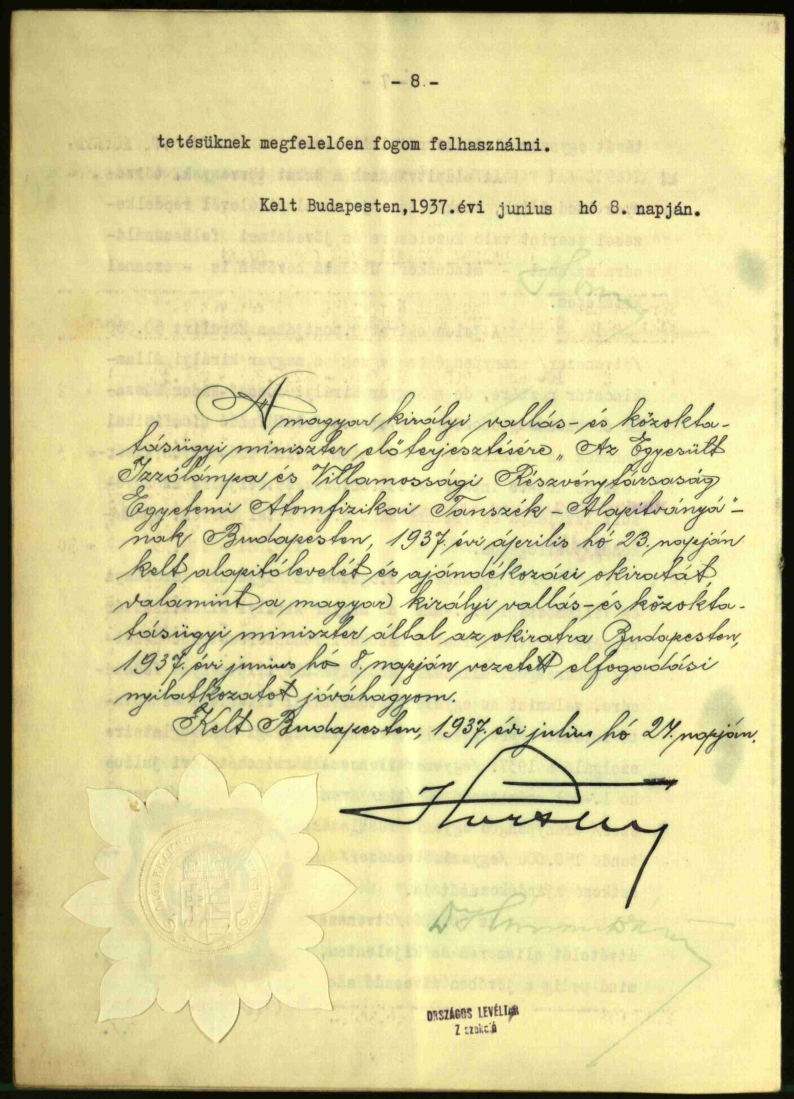 - 8.-
tetésüknek megfelelően fogom felhasználni.
Kelt Budapesten,1937.évi junius hó 8. napján.
A magyar királyi vallás- és közokta-
tásügyi miniszter előterjesztésére „Az Egyesült
Izzólámpa és Villamossági Részvénytársaság
Egyetemi Atomfizikai Tanszék-Alapítványá"-
nak Budapesten, 1937. évi április hó 23. napján
kelt alapítólevelét és ajándékozási okiratát,
valamint a magyar királyi vallás- és közokta-
tásügyi miniszter által az okiratra Budapesten,
1937. évi junius hó 8. napján vezetett elfogadási
nyilatkozatot jóváhagyom.
Kelt Budapesten, 1937. évi július hó 27. napján.
Horthy
ORSZÁGOS LEVÉLTÁR
Z szekció